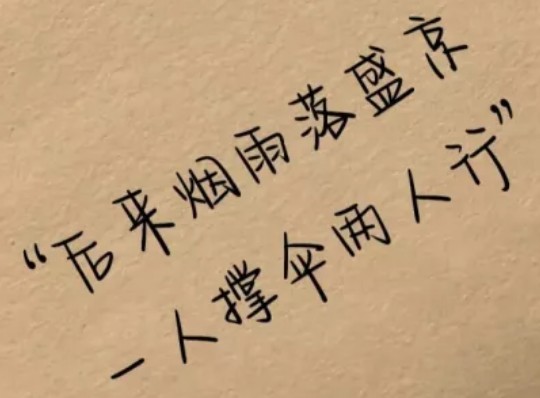 “后来烟雨落盛京
一人撑伞两人行”